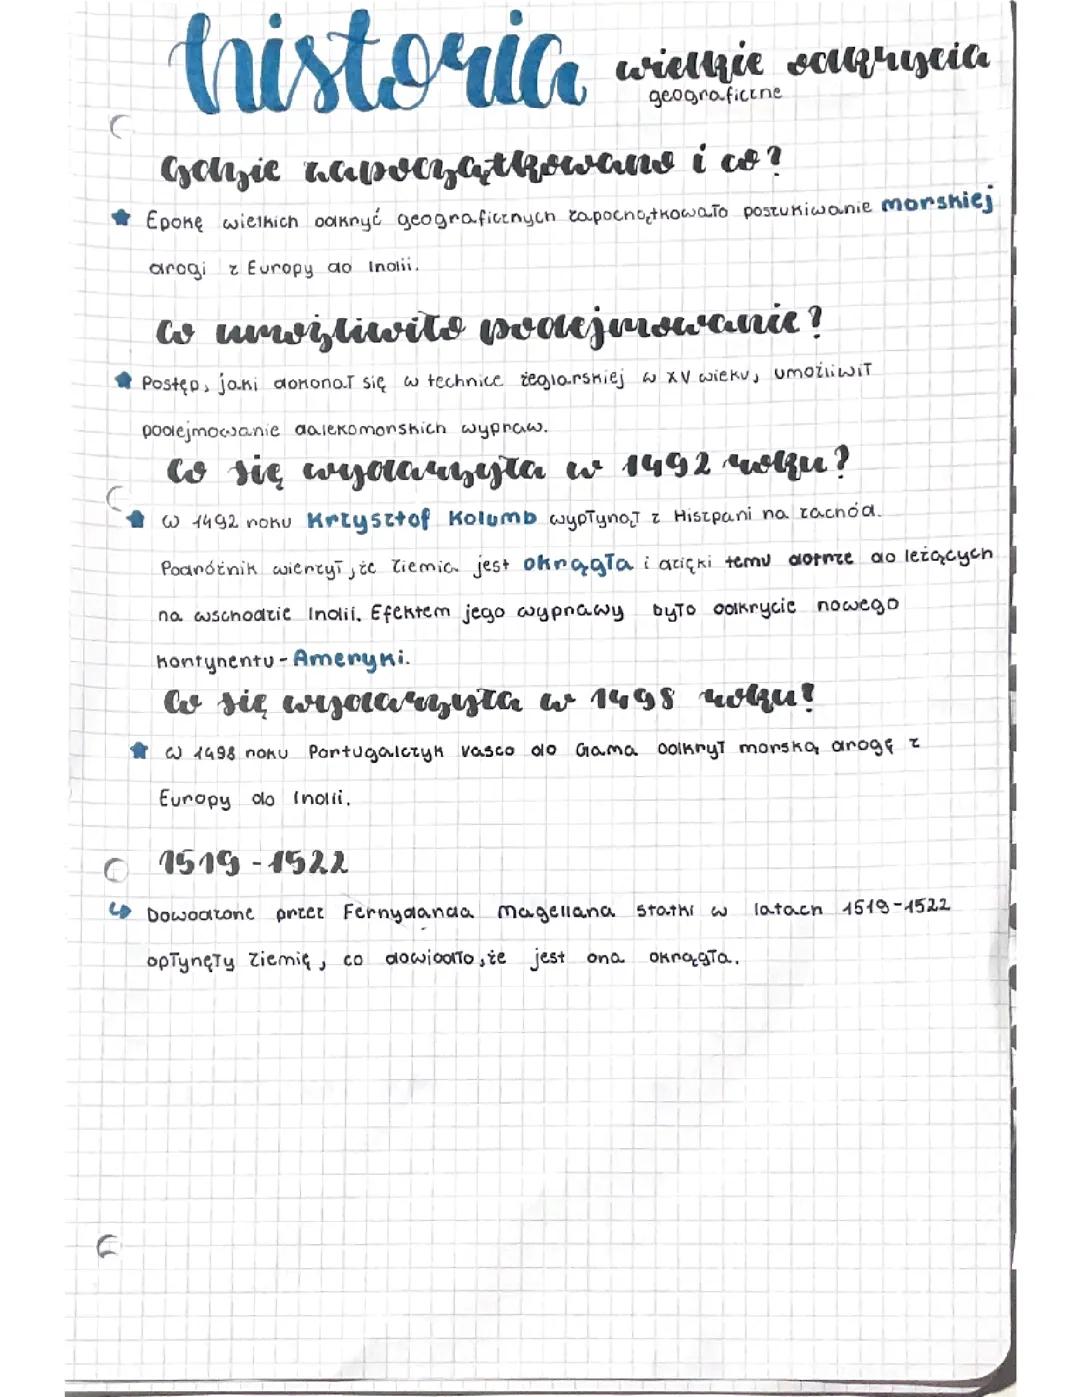 historia wielkie odkrycia
geograficzne
Gdzie zapoczątkowano i co?
Epokę wielkich odkryć geograficznych zapoczątkowało poszukiwanie morskiej
drogi z Europy do Indii.
Co umożliwiło podejmowanie?
Postęp, jaki dokonał się w technice żeglarskiej w XV wieku, umożliwił
podejmowanie dalekomorskich wypraw.
Co się wydarzyła w 1492 roku?
W 1492 roku Krzysztof Kolumb wypłynął z Hiszpani na zachód.
Podróżnik wierzył, że Ziemia jest okrągła i dzięki temu dotrze do leżących
na wschodzie Indii. Efektem jego wyprawy było odkrycie nowego
kontynentu - Ameryki.
Co się wydarzyła w 1498 roku?
W 1498 roku Portugalczyk Vasco do Gama odkrył morską drogę z
Europy do Indii.
1519 - 1522
Dowodzone przez Fernydanda Magellana statki w latach 1519-1522
opłynęły Ziemię, co dowiodło, że jest ona okrągła.